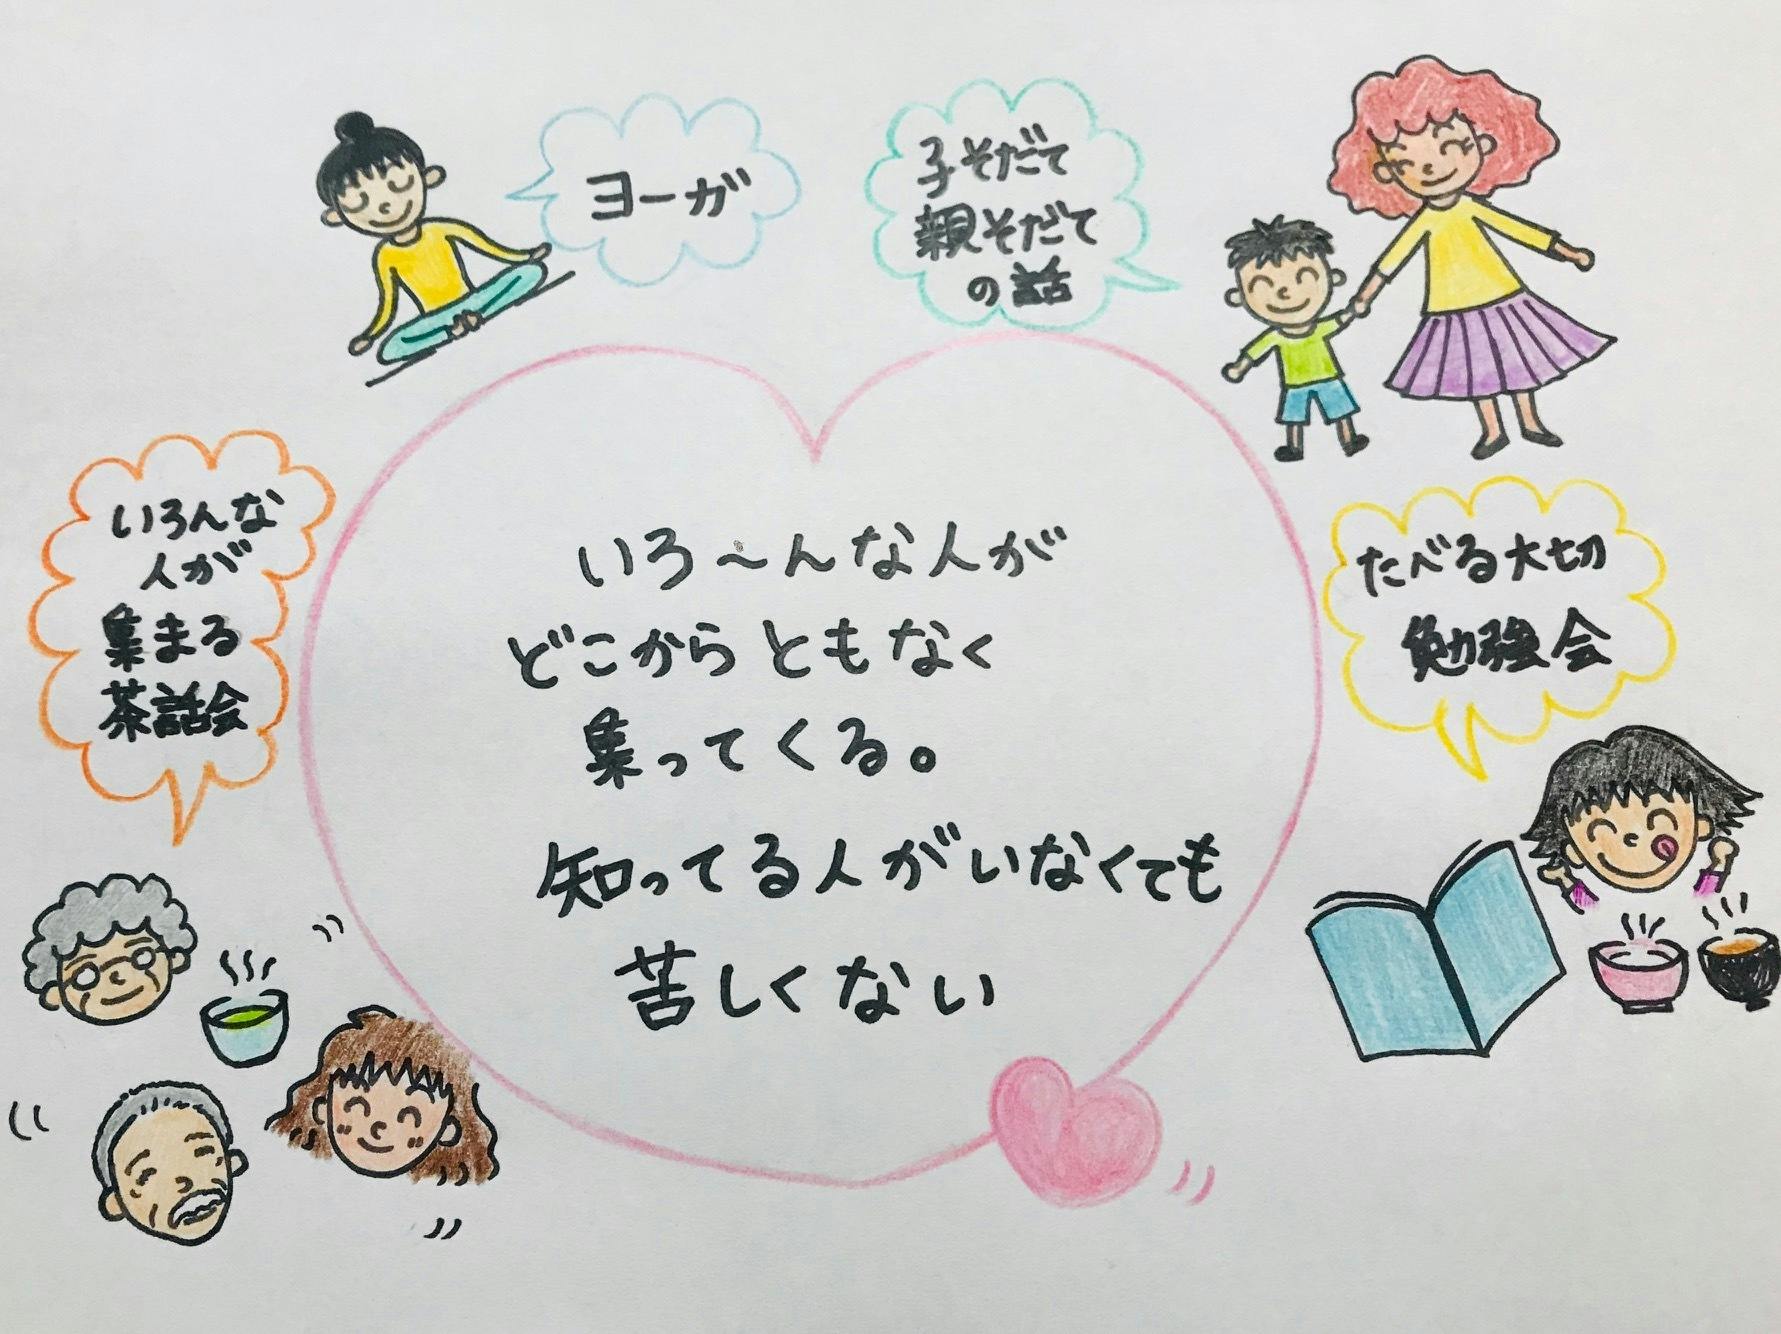 ヨーガ
子そだて
親そだて
の話
いろんな
人が
集まる
茶話会
いろ～んな人が
どこからともなく
集ってくる。
知ってる人がいなくても
苦しくない
たべる大切
勉強会